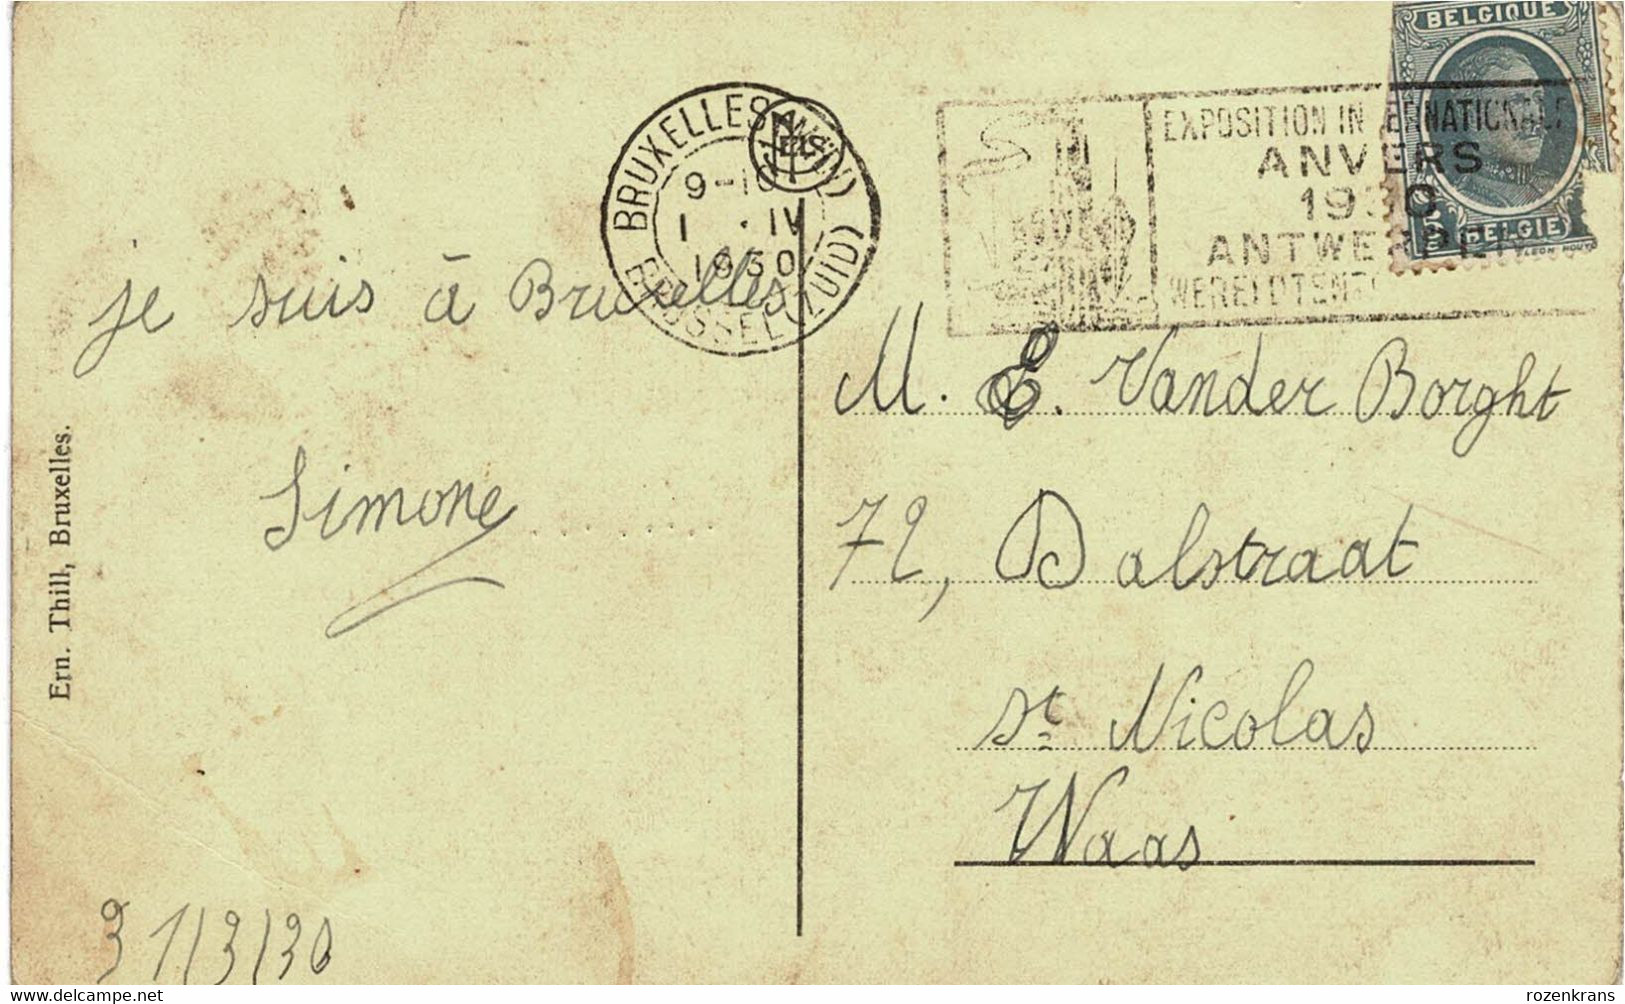 BELGIQUE
BELGIË
BRUXELLES (MIDI)
9-10
1 . IV
1930
BRUSSEL (ZUID)
EXPOSITION INTERNATIONALE
ANVERS
1930
ANTWERPEN
je suis à Bruxelles
Simone
31/3/30
Ern. Thill, Bruxelles.
M. E. Vander Borght
72, Dalstraat
St Nicolas
Waas
www.delcampe.net
rozenkrans